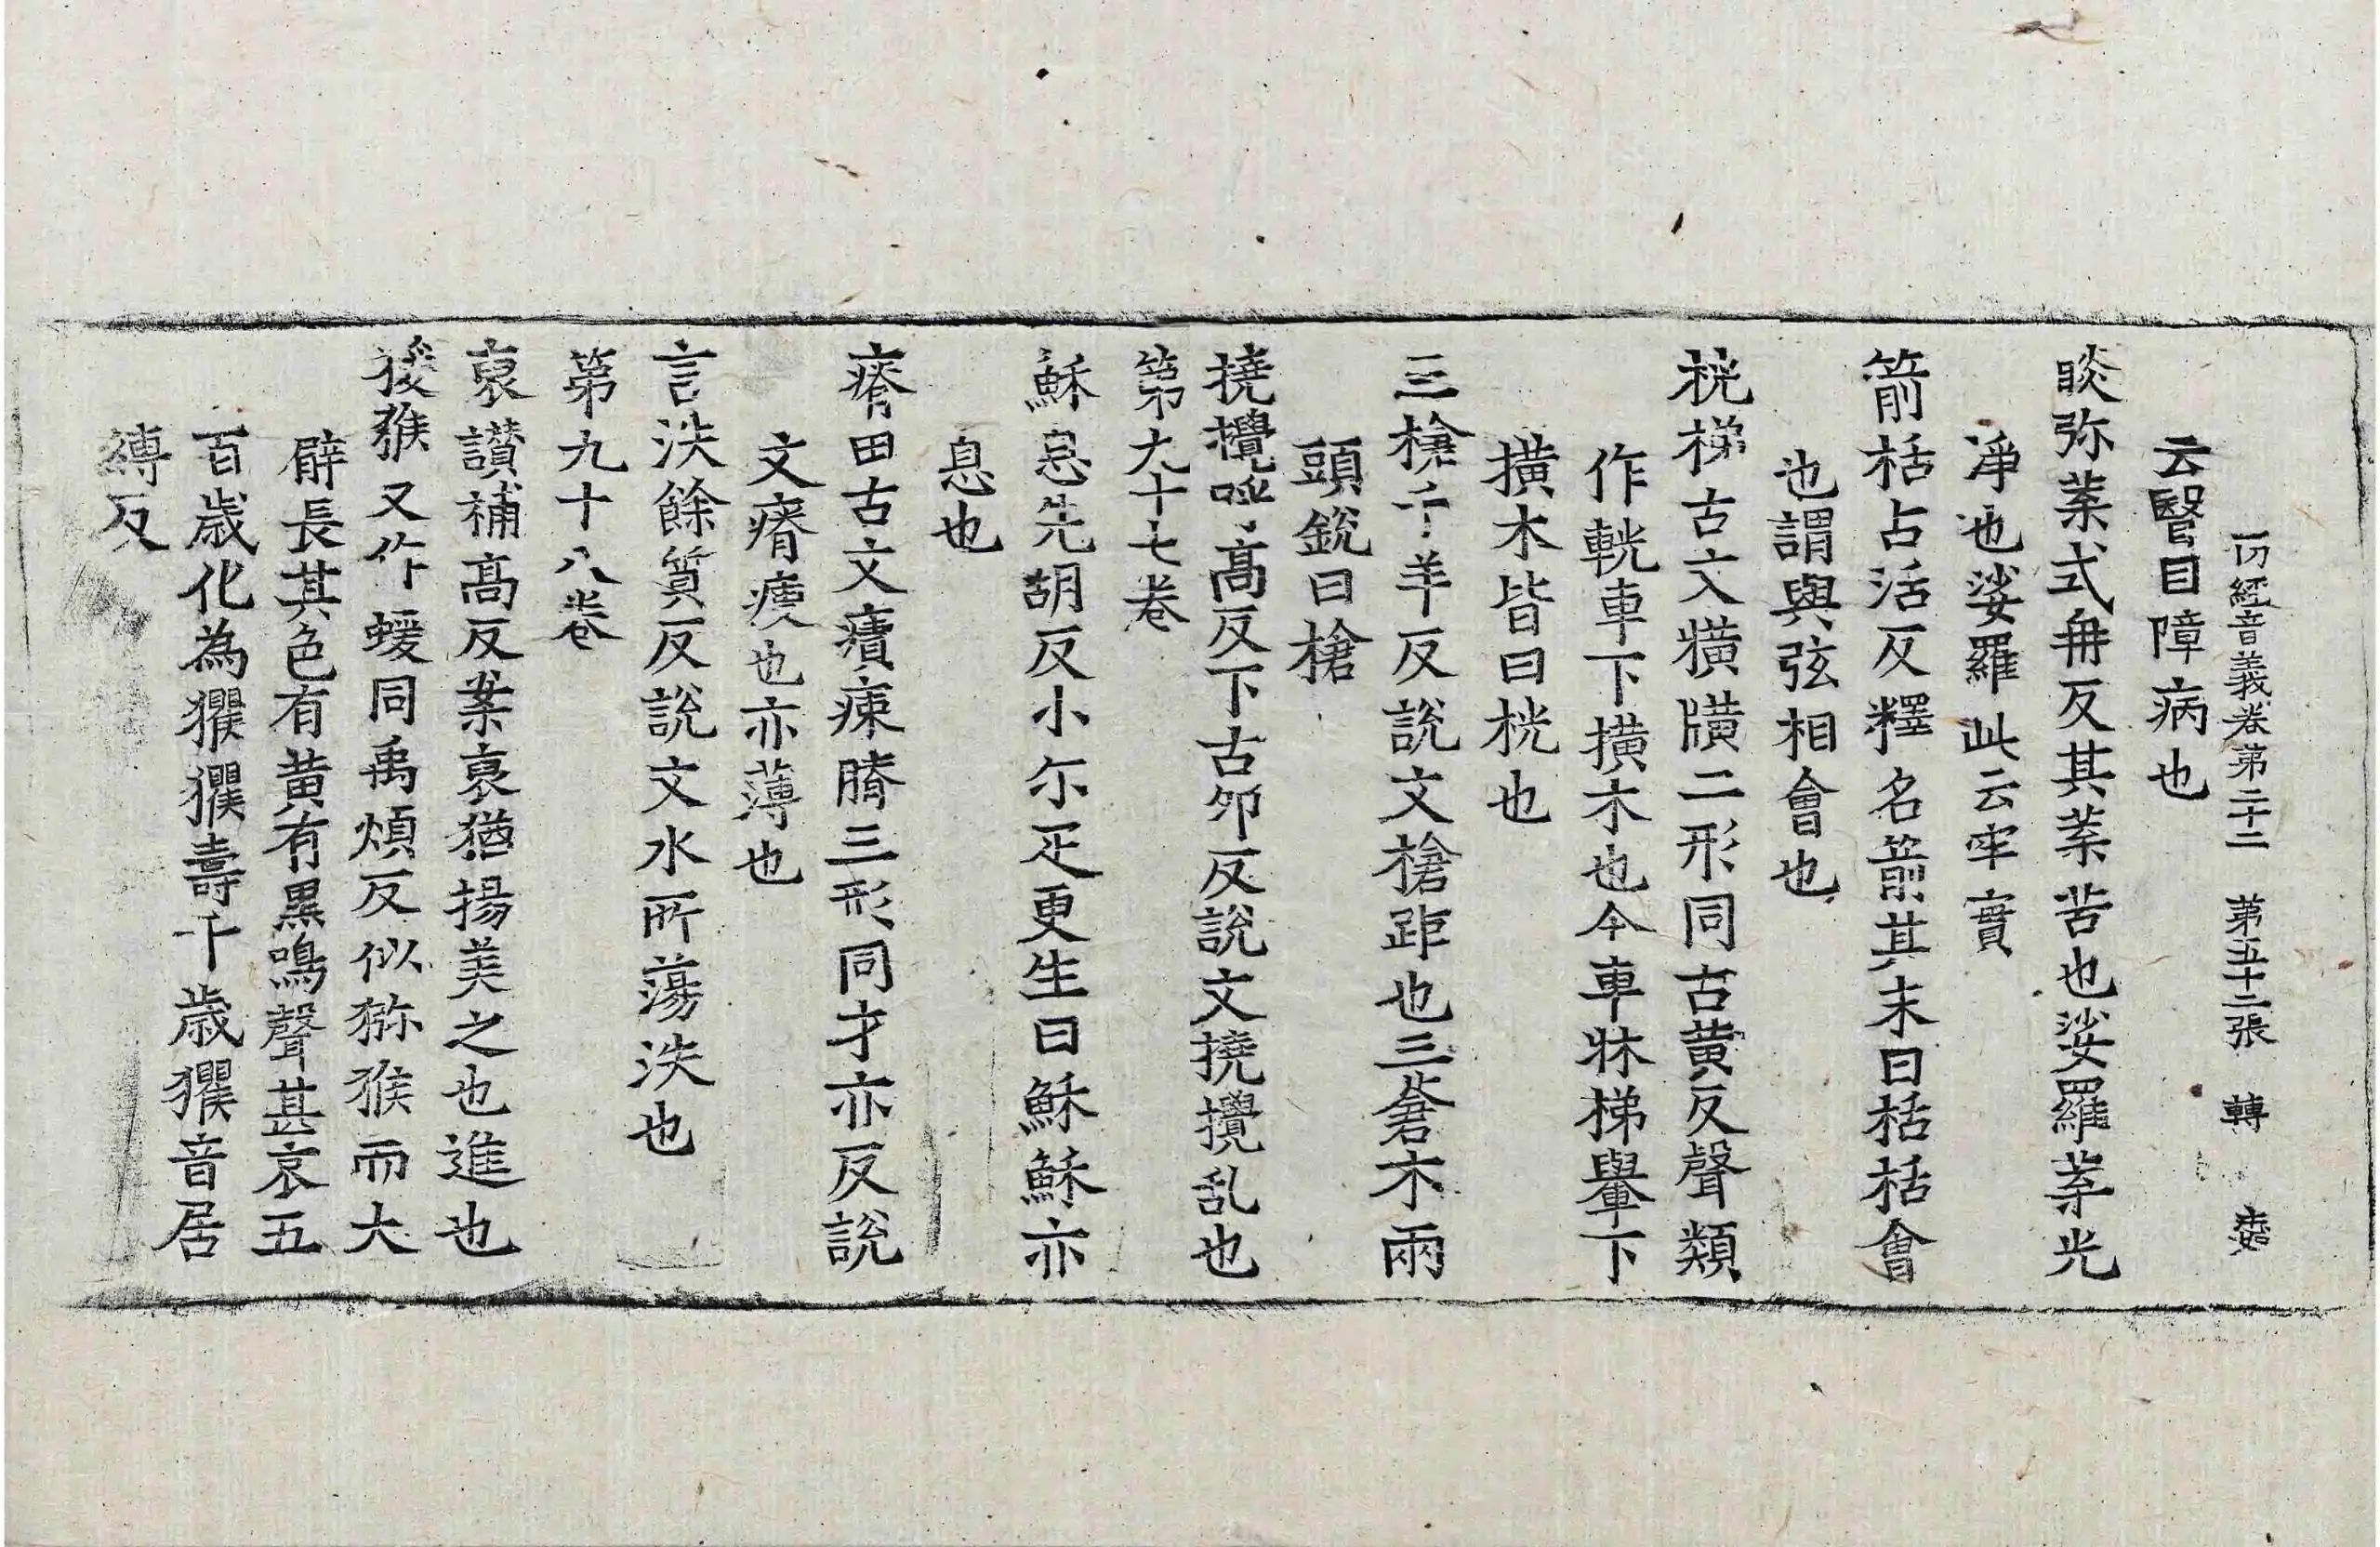 一切經音義卷第二十二 第五十二張 轉
云瞖目障病也
睒弥葉式冉反其葉苦也娑羅葉光
淨也娑羅此云牢實
箭栝古活反釋名箭其末曰栝栝會
也謂與弦相會也
桄梯古文㸠䊗二形同古黃反聲類
作輄車下橫木也今車牀梯轝下
橫木皆曰桄也
三槍千羊反說文槍距也三蒼木兩
頭銳曰槍
撓攪呼高反下古卯反說文撓攪乱也
第九十七卷
穌息先胡反小尓疋更生曰穌穌亦
息也
瘠田古文㾊𤷃膌三形同才亦反說
文瘠瘦也亦薄也
言泆餘質反說文水所蕩泆也
第九十八卷
裒讚補髙反案裒猶揚美之也進也
猨猴又作蝯同禹煩反似猕猴而大
臂長其色有黃有黑鳴聲甚哀五
百歲化為玃玃壽千歲玃音居
縛反